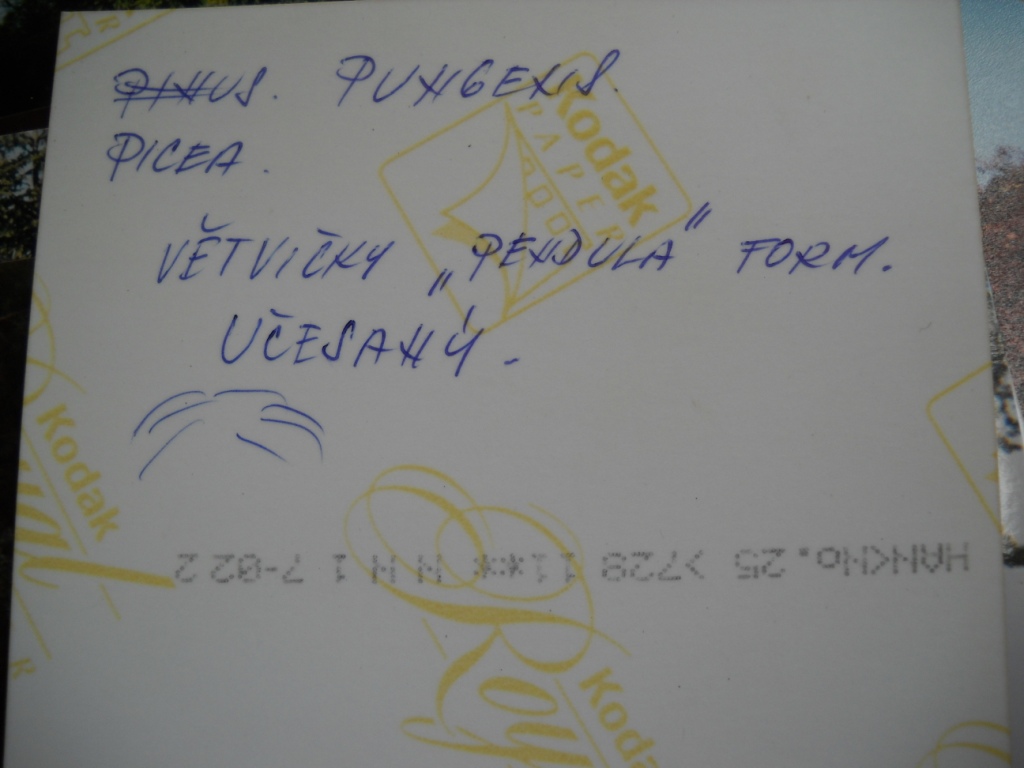 PINUS. PUNGENS.
PICEA.
VĚTVIČKY „PENDULA" FORM.
UČESANÝ.
Kodak
PAPER
Kodak
Royal
HANKNo.25 >728 11** N N 1 7-02 2
Kodak
Roy